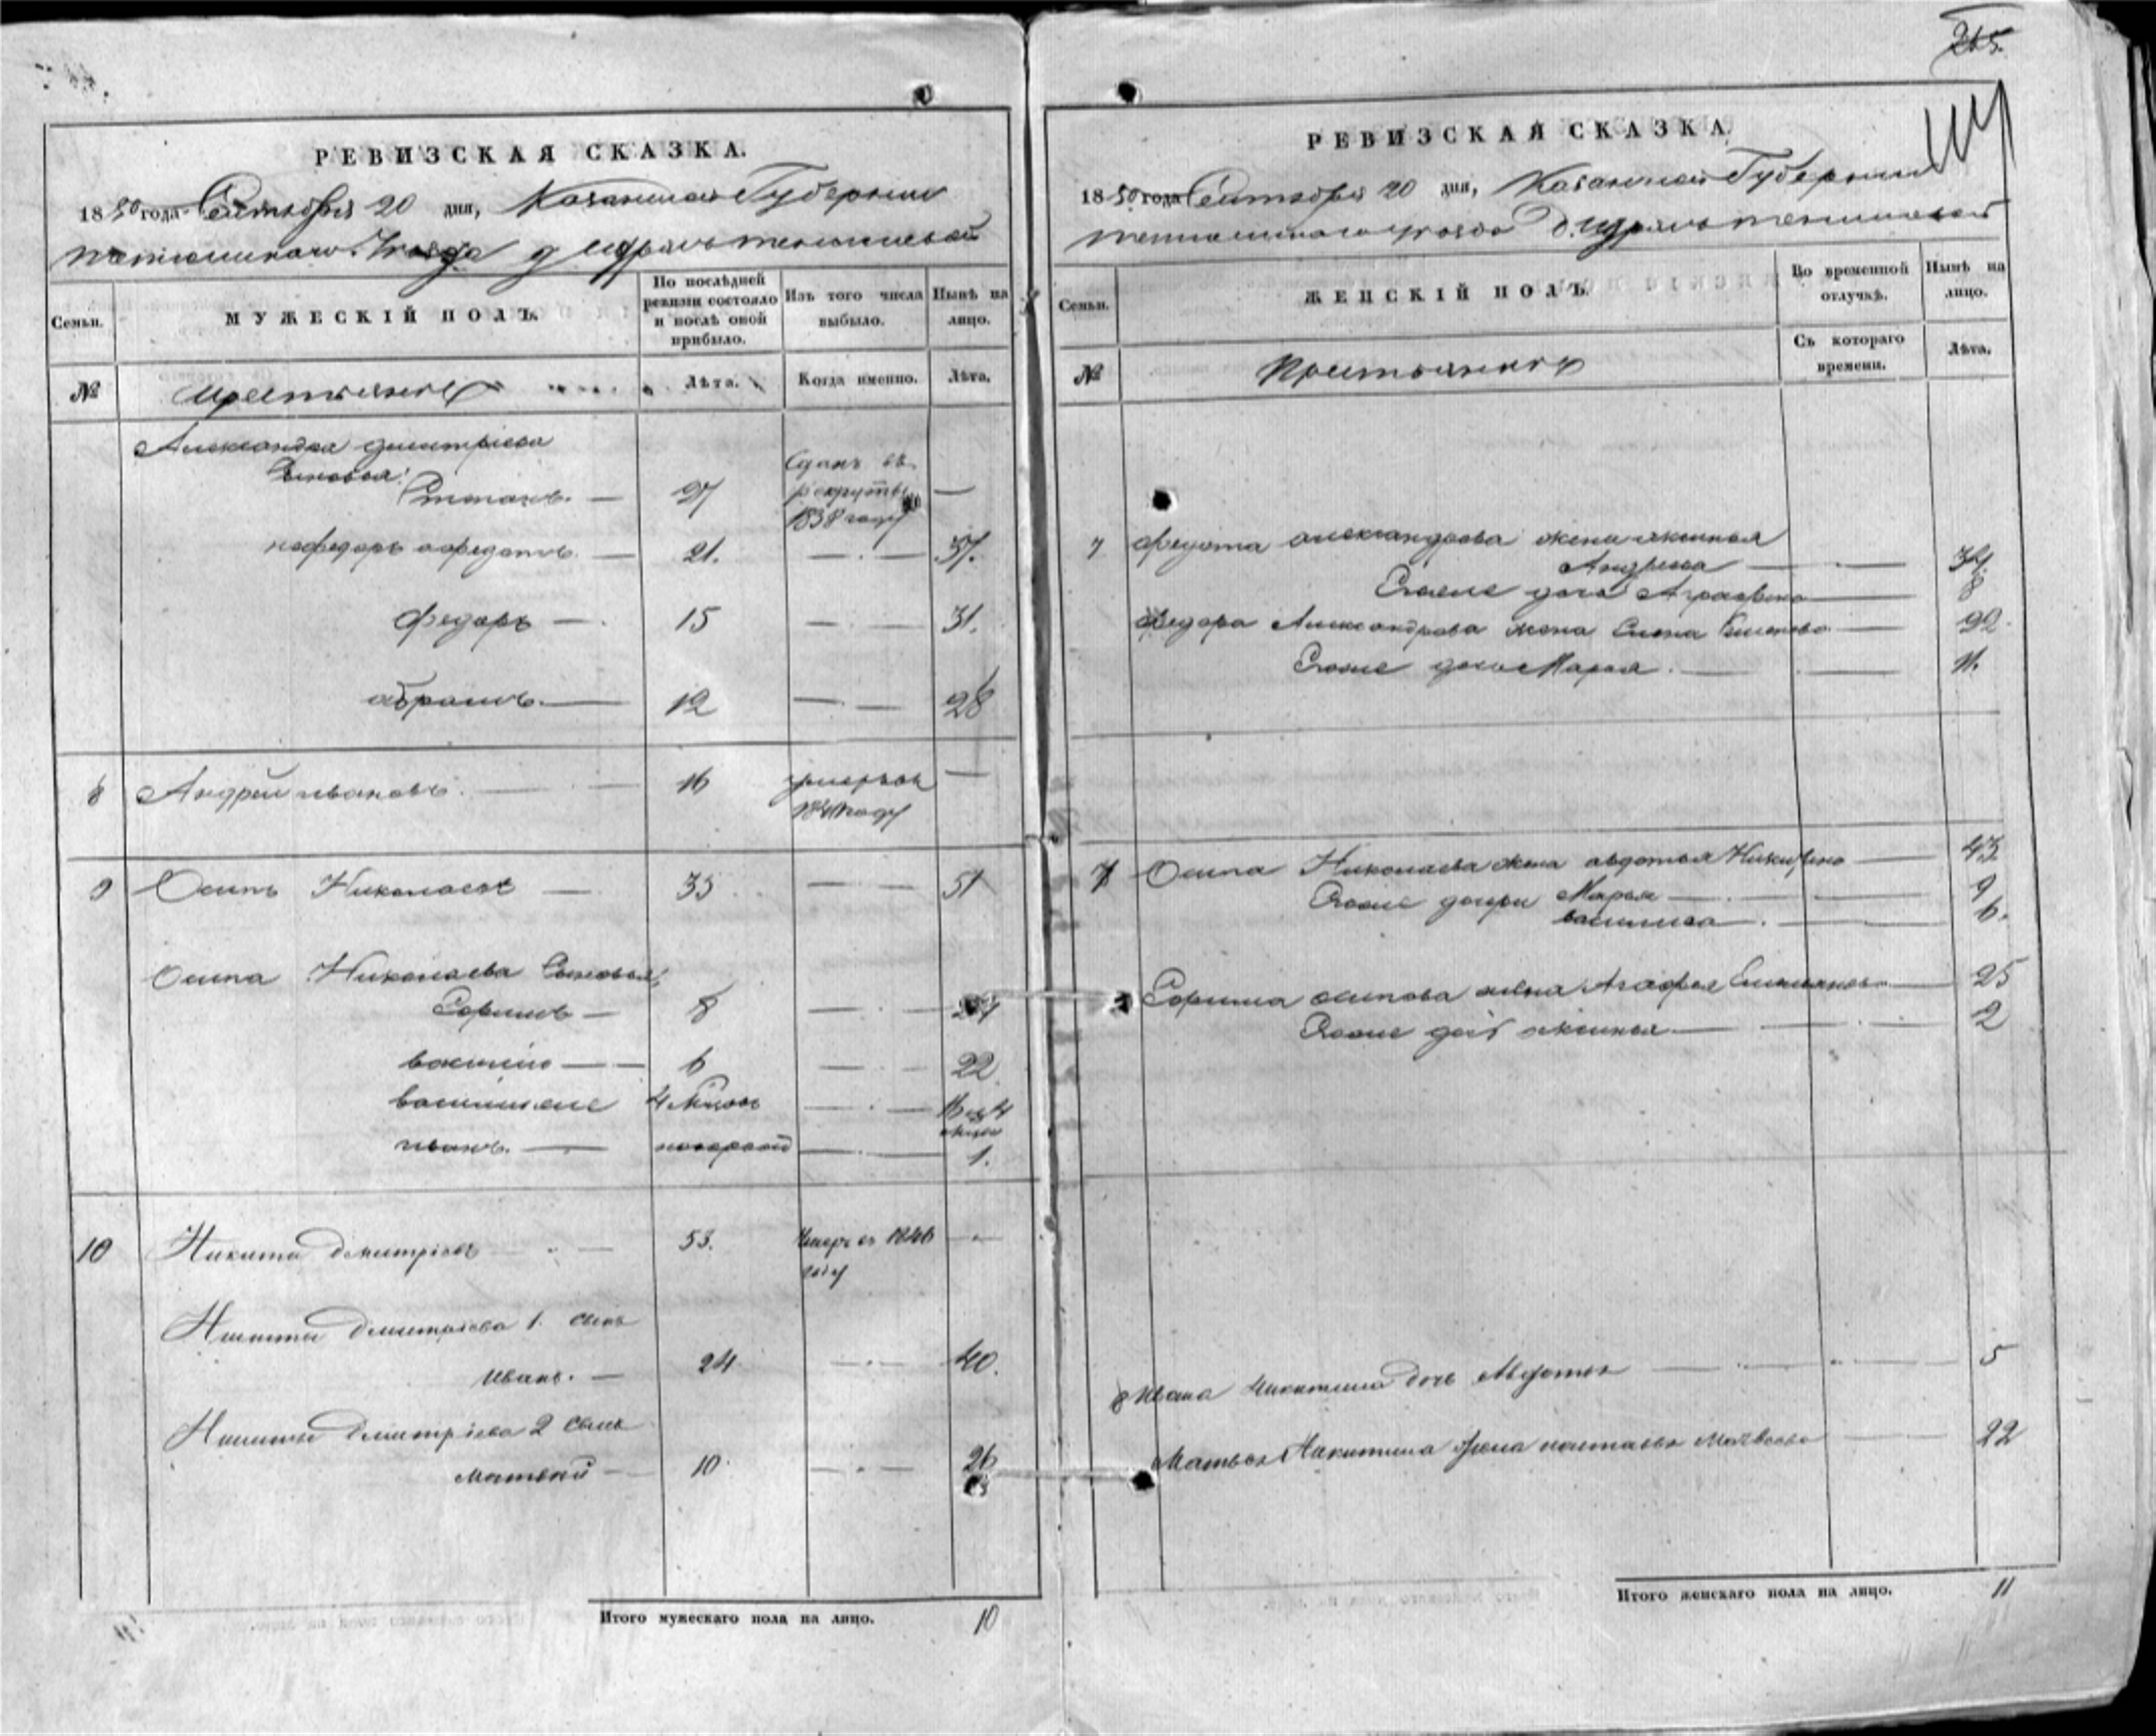 265.
РЕВИЗСКАЯ СКАЗКА.
1850 года Сентября 20 дня, Казанской Губернии
Тетюшского Уезда д
Семьи.
МУЖЕСКІЙ ПОЛЪ.
По послѣдней ревизіи состояло и послѣ оной прибыло.
Изъ того числа выбыло.
Нынѣ на лицо.
№
Крестьяне
Лѣта.
Когда именно.
Лѣта.
Александра Дмитріева
Сыновья:
Степанъ. — 27 Сданъ въ рекруты 1838 году —
Федотъ — 21. — 37.
Федоръ — 15 — 31.
Абрамъ. — 12 — 28
8 Андрей Ивановъ. 16 умеръ въ 1841 году —
9 Осипъ Николаевъ — 35 — 51
Осипа Николаева Сыновья:
8 — 24
Василій — 6 — 22
4 — 
Иванъ. — — 1.
10 Никита Дмитріевъ — 53. Умеръ въ 1846 году —
Никиты Дмитріева 1. сынъ
Иванъ. — 24 — 40.
Никиты Дмитріева 2 сынъ
Матвей — 10 — 26
Итого мужескаго пола на лицо. 10
РЕВИЗСКАЯ СКАЗКА.
1850 года Сентября 20 дня, Казанской Губернии
Тетюшского уезда Д.
Семьи.
ЖЕНСКІЙ ПОЛЪ.
Во временной отлучкѣ.
Нынѣ на лицо.
№
Крестьянки
Съ котораго времени.
Лѣта.
7 Федота Александрова жена Аксинья
Андреева — 34.
дочь Аграфена — 8
Федора Александрова жена Елена —
дочь Марья. — 11.
Осипа Николаева жена Авдотья — 43
дочери Марья — 9
Василиса — 6.
Осипова жена Агафья — 25
дочь Аксинья — 2
8 Ивана Никитина дочь Авдотья — 5
Матвея Никитина жена Настасья Матвеева — 22
Итого женскаго пола на лицо. 11